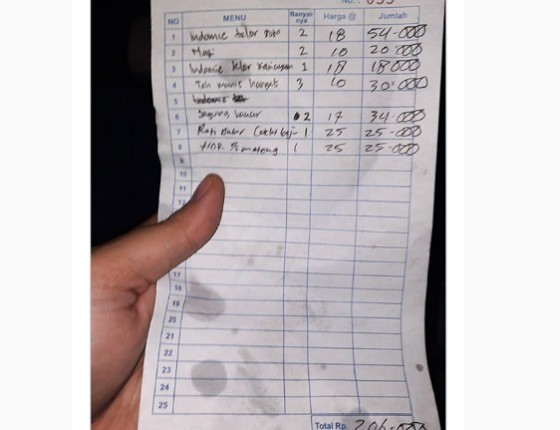 No.: 055
NO MENU Banyak nya Harga @ Jumlah
1 Indomie telor soto 2 18 54.000
2 Nasi 2 10 20.000
3 Indomie telor 1 18 18000
4 Teh manis hangat 3 10 30.000
5 Indomie
6 Jagung bakar 2 17 34.000
7 Roti Bakar 1 25 25.000
8 1 25 25.000
9
10
11
17
18
19
20
21
22
23
24
25
Total Rp. 206.000